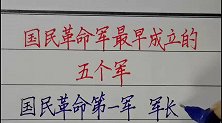 国民革命军最早成立的
五个军
国民革命第一军 军长